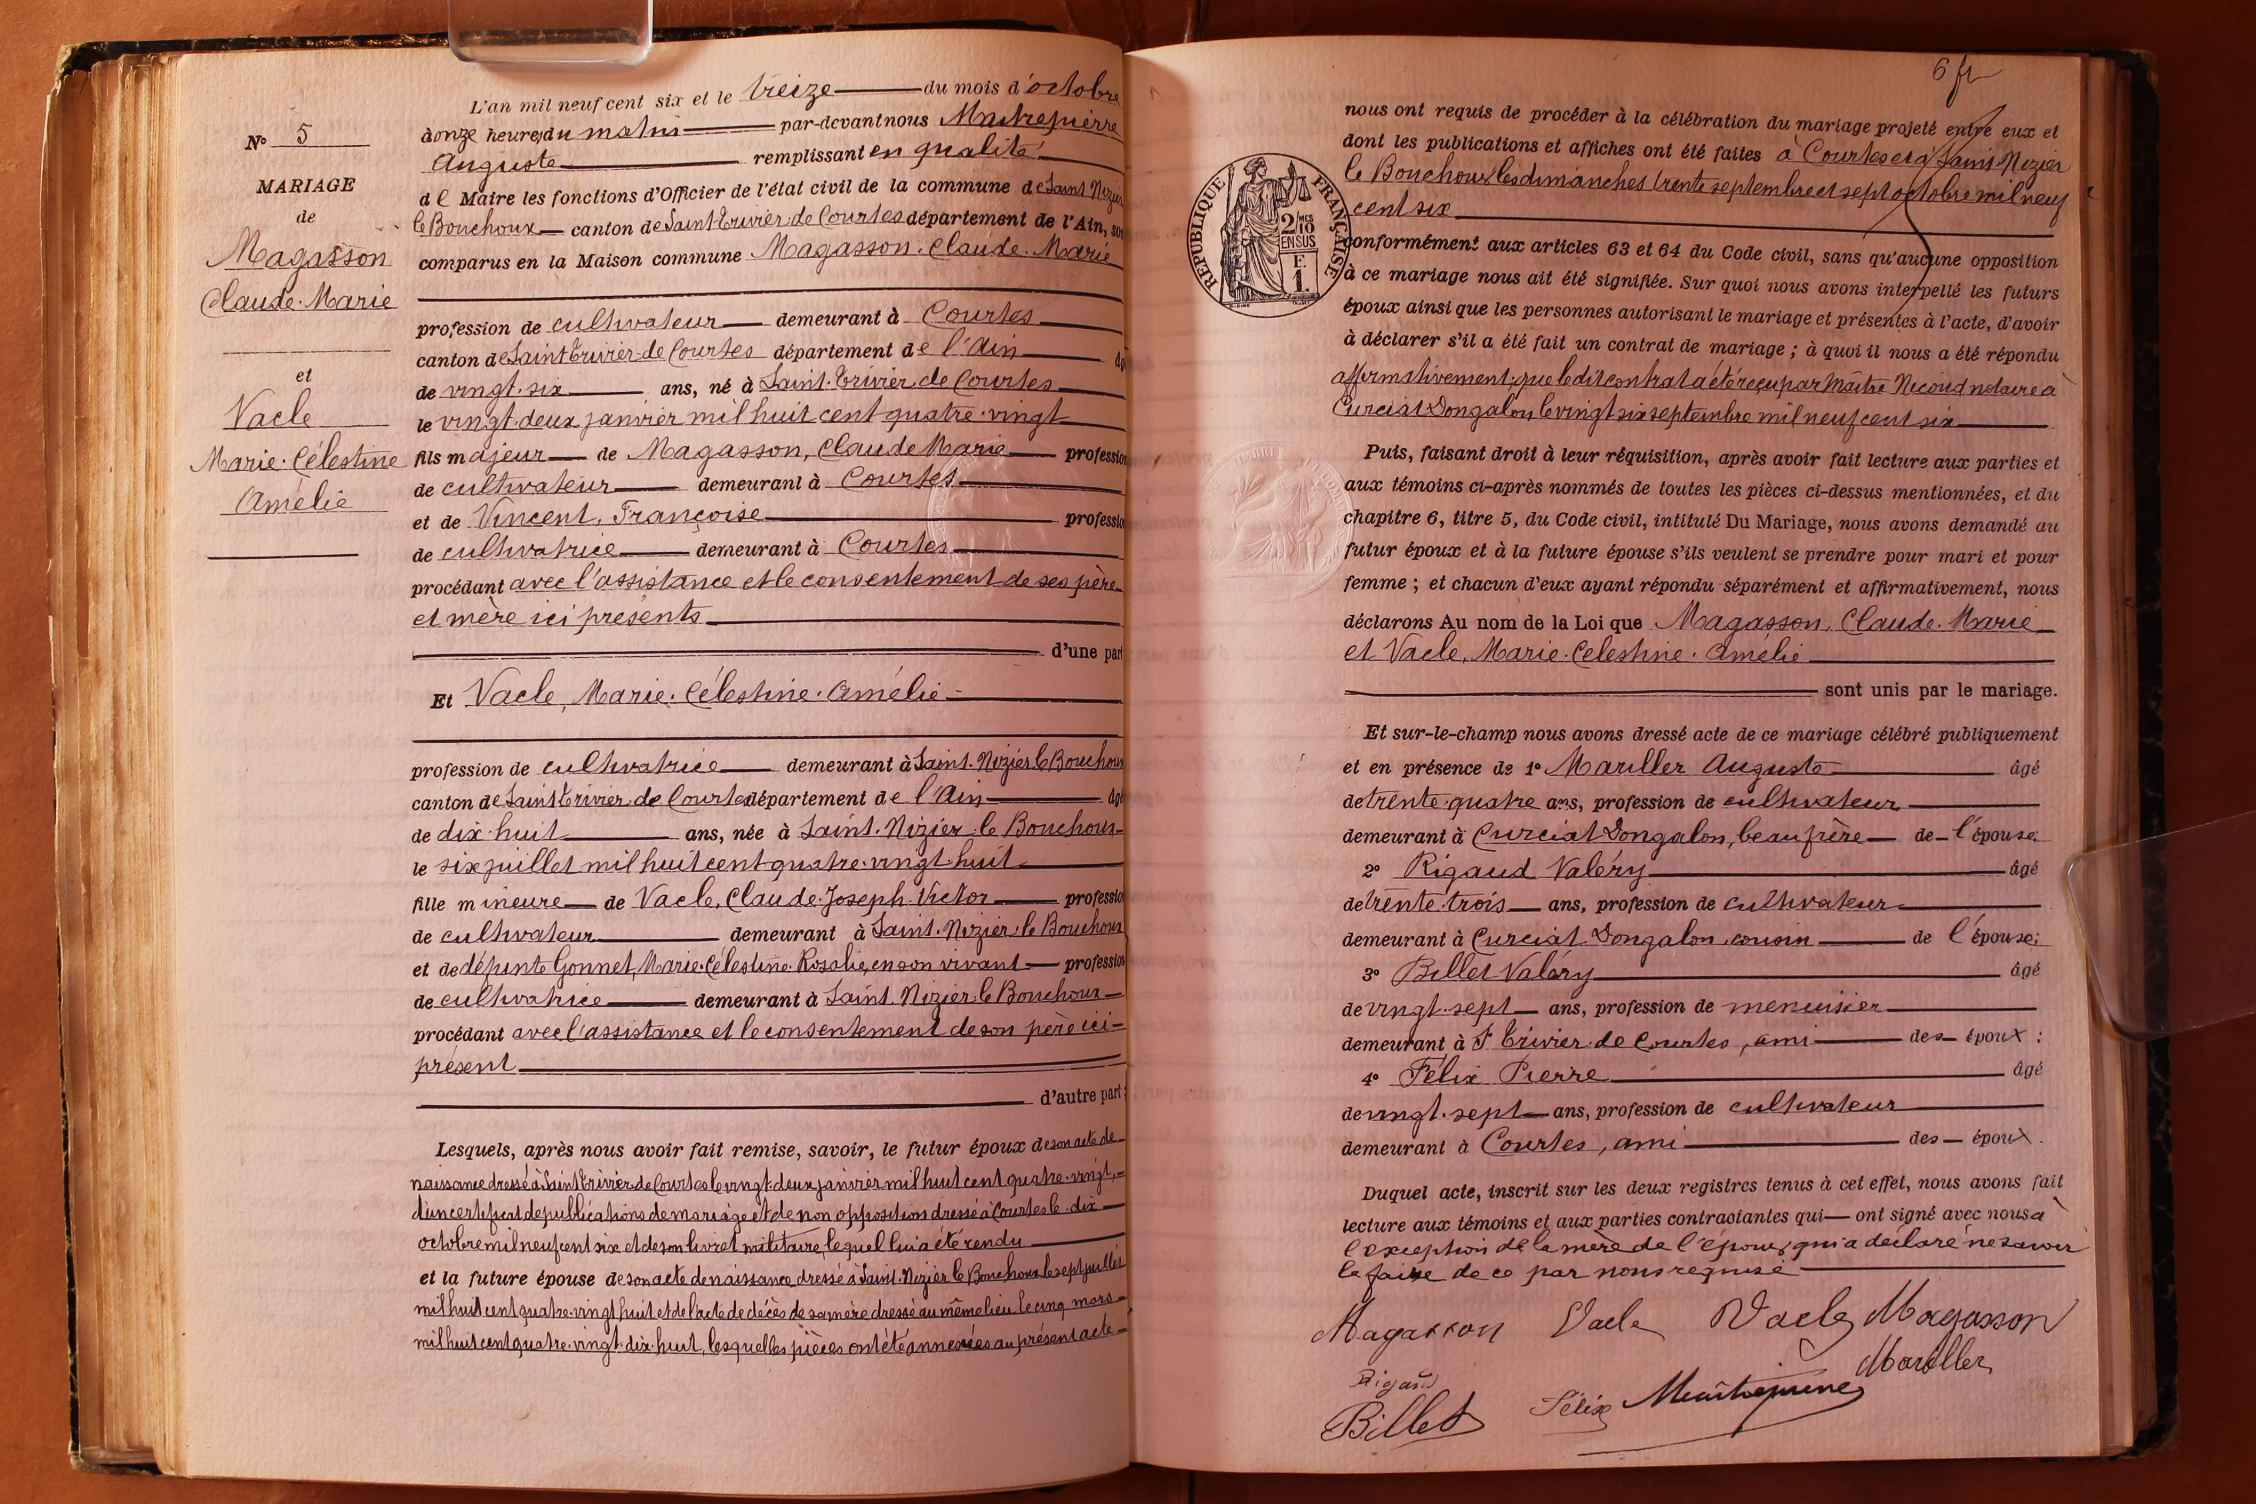 N° 5
MARIAGE
de
Magasson
Claude. Marie
et
Vacle
Marie. Célestine
Amélie
L'an mil neuf cent six et le treize du mois d'octobre
à onze heures du matin par-devant nous Maitrepierre
Auguste remplissant en qualité
de Maire les fonctions d'Officier de l'état civil de la commune de Saint Nizier
le Bouchoux canton de Saint Trivier de Courtes département de l'Ain, son
comparus en la Maison commune Magasson. Claude. Marie
profession de cultivateur demeurant à Courtes
canton de Saint Trivier de Courtes département de l'Ain âgé
de vingt. six ans, né à Saint. Trivier de Courtes
le vingt. deux janvier mil huit cent quatre. vingt
fils majeur de Magasson, Claude Marie profession
de cultivateur demeurant à Courtes
et de Vincent, Françoise profession
de cultivatrice demeurant à Courtes
procédant avec l'assistance et le consentement de ses père
et mère ici présents
d'une part
Et Vacle, Marie. Célestine. Amélie
profession de cultivatrice demeurant à Saint. Nizier le Bouchoux
canton de Saint Trivier de Courtes département de l'Ain âgé
de dix. huit ans, née à Saint. Nizier. le Bouchoux
le six juillet mil huit cent quatre. vingt. huit
fille mineure de Vacle, Claude. Joseph. Victor profession
de cultivateur demeurant à Saint. Nizier. le Bouchoux
et de défunte Gonnet, Marie. Célestine. Rosalie, en son vivant profession
de cultivatrice demeurant à Saint. Nizier le Bouchoux
procédant avec l'assistance et le consentement de son père ici
présent
d'autre part ;
Lesquels, après nous avoir fait remise, savoir, le futur époux de son acte de
naissance dressé à Saint Trivier de Courtes le vingt deux janvier mil huit cent quatre. vingt,
d'un certificat de publications de mariage et de non opposition dressé à Courtes le dix
octobre mil neuf cent six et de son livret militaire, lequel lui a été rendu
et la future épouse de son acte de naissance dressé à Saint. Nizier le Bouchoux le sept juillet
mil huit cent quatre. vingt huit et de l'acte de décès de sa mère dressé au même lieu le cinq mars
mil huit cent quatre. vingt. dix. huit, lesquelles pièces ont été annexées au présent acte
6 fr
nous ont requis de procéder à la célébration du mariage projeté entre eux et
dont les publications et affiches ont été faites à Courtes et à Saint. Nizier
le Bouchoux les dimanches trente septembre et sept octobre mil neuf
cent six
RÉPUBLIQUE FRANÇAISE
2/10 MES
EN SUS
F.
1.
conformément aux articles 63 et 64 du Code civil, sans qu'aucune opposition
à ce mariage nous ait été signifiée. Sur quoi nous avons interpellé les futurs
époux ainsi que les personnes autorisant le mariage et présentes à l'acte, d'avoir
à déclarer s'il a été fait un contrat de mariage ; à quoi il nous a été répondu
affirmativement, que le dit contrat a été reçu par Maître Nicoud notaire à
Curciat Dongalon, le vingt six septembre mil neuf cent six
Puis, faisant droit à leur réquisition, après avoir fait lecture aux parties et
aux témoins ci-après nommés de toutes les pièces ci-dessus mentionnées, et du
chapitre 6, titre 5, du Code civil, intitulé Du Mariage, nous avons demandé au
futur époux et à la future épouse s'ils veulent se prendre pour mari et pour
femme ; et chacun d'eux ayant répondu séparément et affirmativement, nous
déclarons Au nom de la Loi que Magasson, Claude. Marie
et Vacle, Marie. Celestine. Amélie
sont unis par le mariage.
Et sur-le-champ nous avons dressé acte de ce mariage célébré publiquement
et en présence de 1° Mariller Auguste âgé
de trente. quatre ans, profession de cultivateur
demeurant à Curciat Dongalon, beau frère de l'épouse;
2° Rigaud Valéry âgé
de trente. trois ans, profession de cultivateur
demeurant à Curciat. Dongalon, cousin de l'épouse;
3° Billet Valéry âgé
de vingt. sept ans, profession de menuisier
demeurant à St Trivier. de Courtes, ami des époux ;
4° Félix Pierre âgé
de vingt. sept ans, profession de cultivateur
demeurant à Courtes, ami des époux.
Duquel acte, inscrit sur les deux registres tenus à cet effet, nous avons fait
lecture aux témoins et aux parties contractantes qui ont signé avec nous à
l'exception de la mère de l'époux, qui a déclaré ne savoir
le faire de ce par nous requise
Magasson Vacle Vacle Magasson
Mariller
Rigaud
Billet Félix Maitrepierre